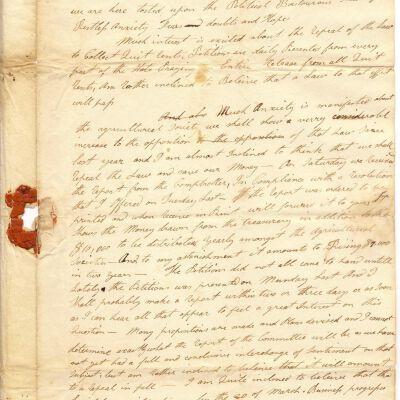 we are here tosted upon the Political
Restless Anxiety Fear and double and Hope
Much interest is excited about the Repeal of the Law
to Collect Quit Rents, Petitions are daily Presented from every
part of the State Praying Entire Release from all Quit
Rents, Am Rather inclined to Beleive that a Law to that effect
will pass
And also Much Anxiety is manifested about
the agricultural Society we shall show a verry considerable
increase to the opposition of that Law Since
last year and I am almost Inclined to think that we shall
repeal the Law and save our Money — On Saturday we Received
the report from the Comptroller, In Compliance with a resolution
that I offered on Tuesday last — The report was ordered to be
printed and when received in print will forward it to you
Shows the Money drawn from the treasury in addition to the
$10,000 to be distributed yearly amongst the Agricultural
Societies — And to my astonishment it amounts to
in two years — The Petitions did not all come to hand untill
lately, the Petition was presented on Monday last And I
shall probably make a report within two or three days or as soon
as I can hear all that appear to feel a great Interest on this
question — Many propositions are made and Plans devised and I cannot
determine exactly what the Report of the Committee will be as we have
not yet had a full and conclusive interchange of Sentiment on that
Subject, but am Rather inclined to beleive that it will amount
to a repeal in full — I am Quite inclined to beleive that the
the 20 of March. Business progress